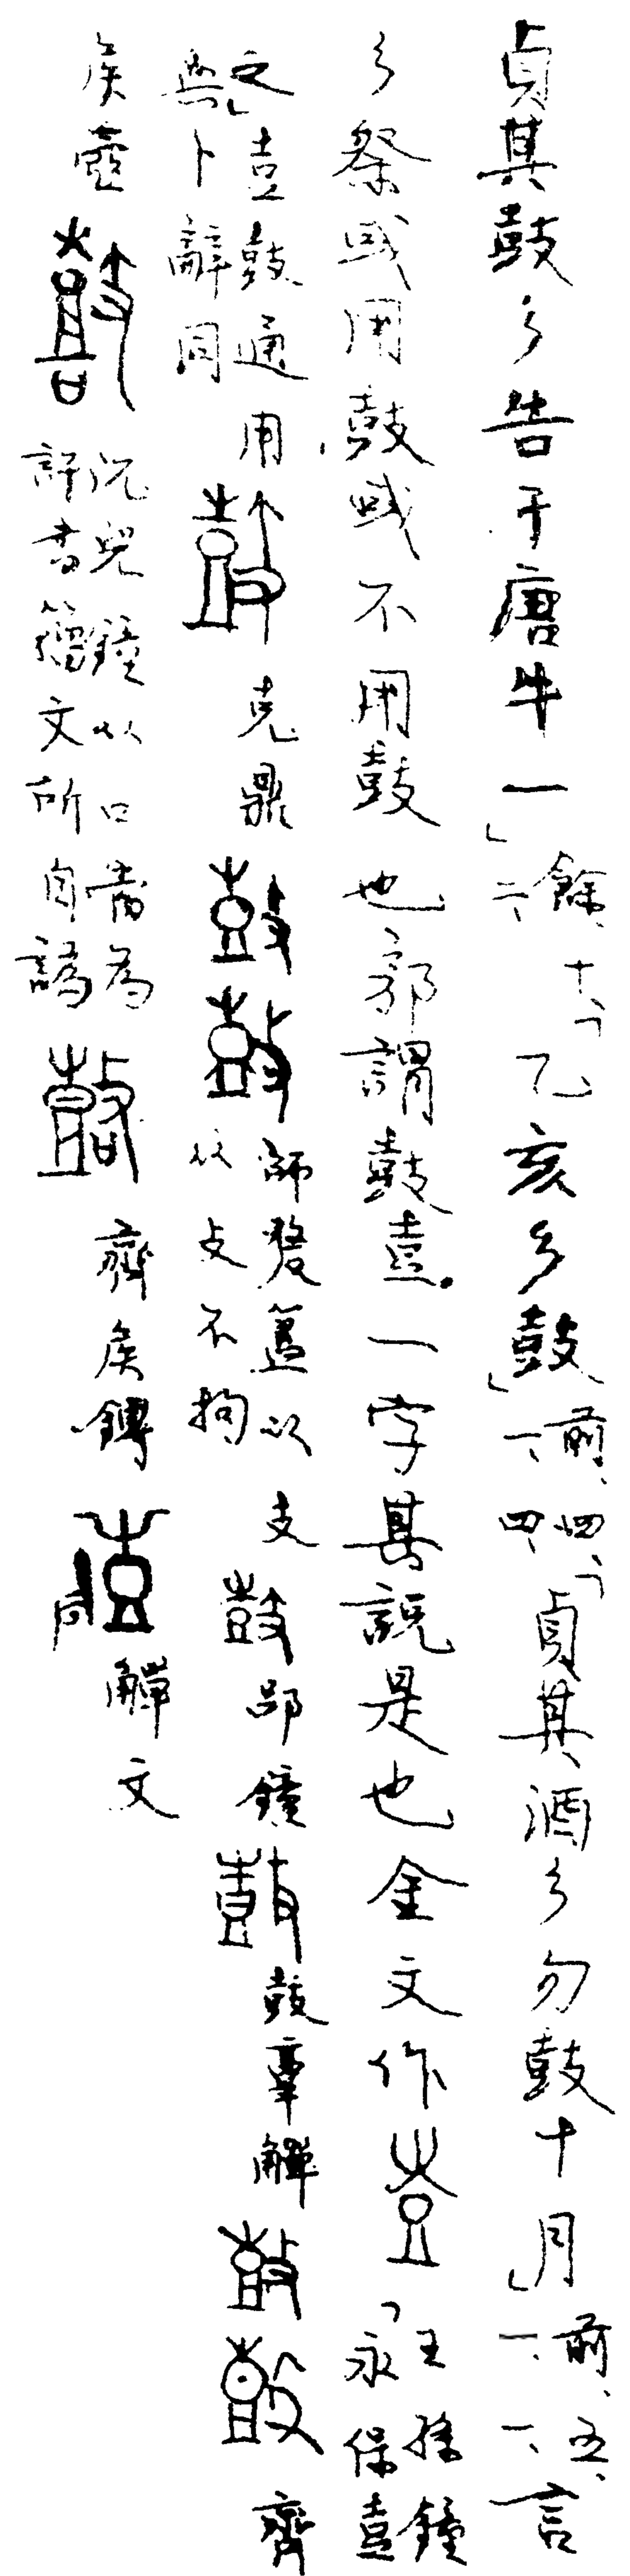 貞其鼓彡告于唐牛一」餘、十、二、「乙亥彡鼓」前、四、一、四、「貞其酒彡勿鼓十月」前、五、一、一、言
彡祭或用鼓或不用鼓也郭謂鼓壴一字其說是也金文作「王孫鐘永保壴
之」壴鼓通用與卜辭同克鼎師𠭰簋從支從攴不拘鼓郘鐘鼓𦎫觶齊
侯壺沇兒鐘從口當為許書籀文所自譌齊侯鎛觶文